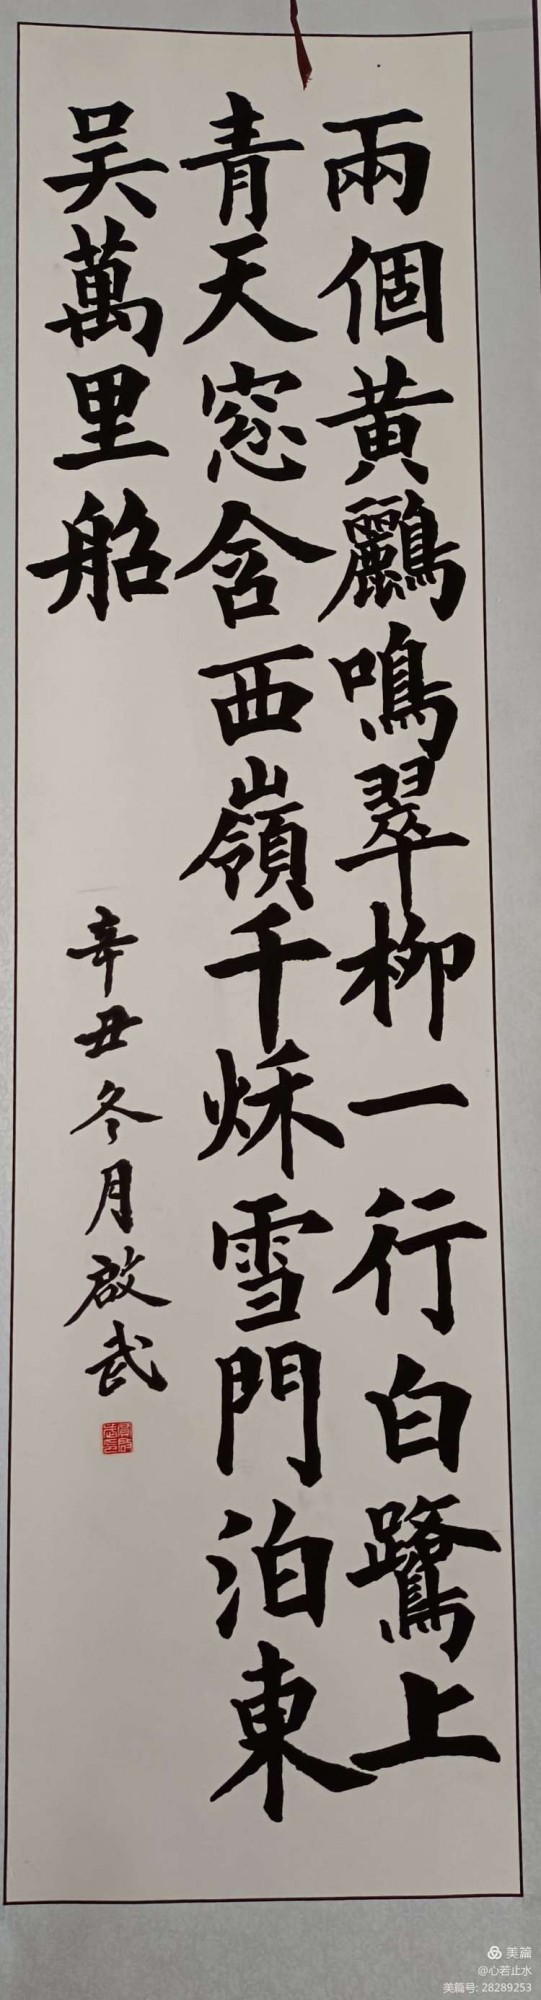 兩個黃鸝鳴翠柳一行白鷺上
青天窓含西嶺千秌雪門泊東
吴萬里船
辛丑冬月啟武
美篇
@心若止水
美篇号: 28289253